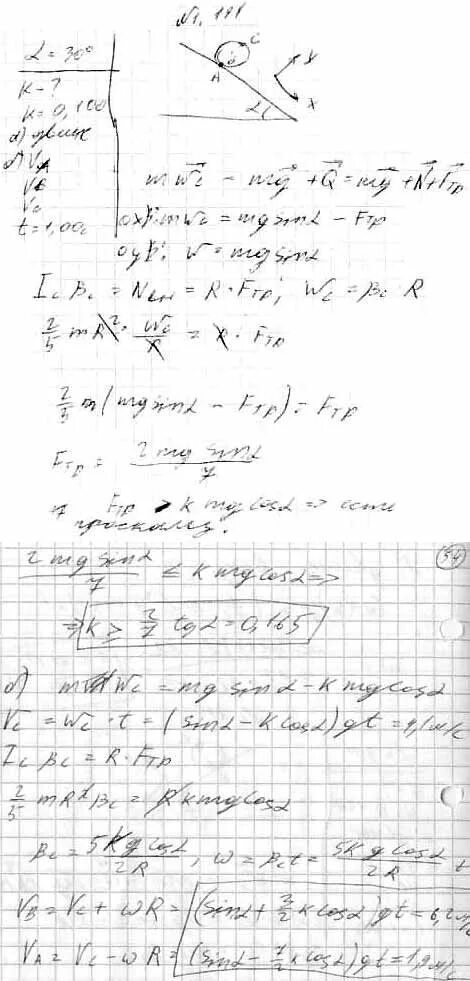 N1.191
α = 30°
k - ?
k = 0,100
а) движ
б) V_A
V_B
V_C
t = 1,00с
A
C
α
y
x
m w⃗_c = mg⃗ + Q⃗ = mg⃗ + N⃗ + F⃗тр
ox: mw_c = mg sinα - Fтр
oy: N = mg sinα
I_c β_c = N вн = R · Fтр ; w_c = β_c R
2/5 mR² · w_c/R = R · Fтр
2/5 m (mg sinα - Fтр) = Fтр
Fтр = 2mg sinα / 7
Fтр > k mg cosα => если
проскальз.
54
2mg sinα / 7 ≤ k mg cosα =>
=> k ≥ 2/7 tgα = 0,165
б) m w_c = mg sinα - k mg cosα
V_c = w_c · t = (sinα - k cosα) gt = 4,1 м/с
I_c β_c = R · Fтр
2/5 mR² β_c = R k mg cosα
β_c = 5kg cosα / 2R , ω = β_c t = 5kg cosα / 2R t
V_B = V_c + ωR = (sinα + 3/2 k cosα) gt = 6,2 м/с
V_A = V_c - ωR = (sinα - 7/2 k cosα) gt = 1,9 м/с